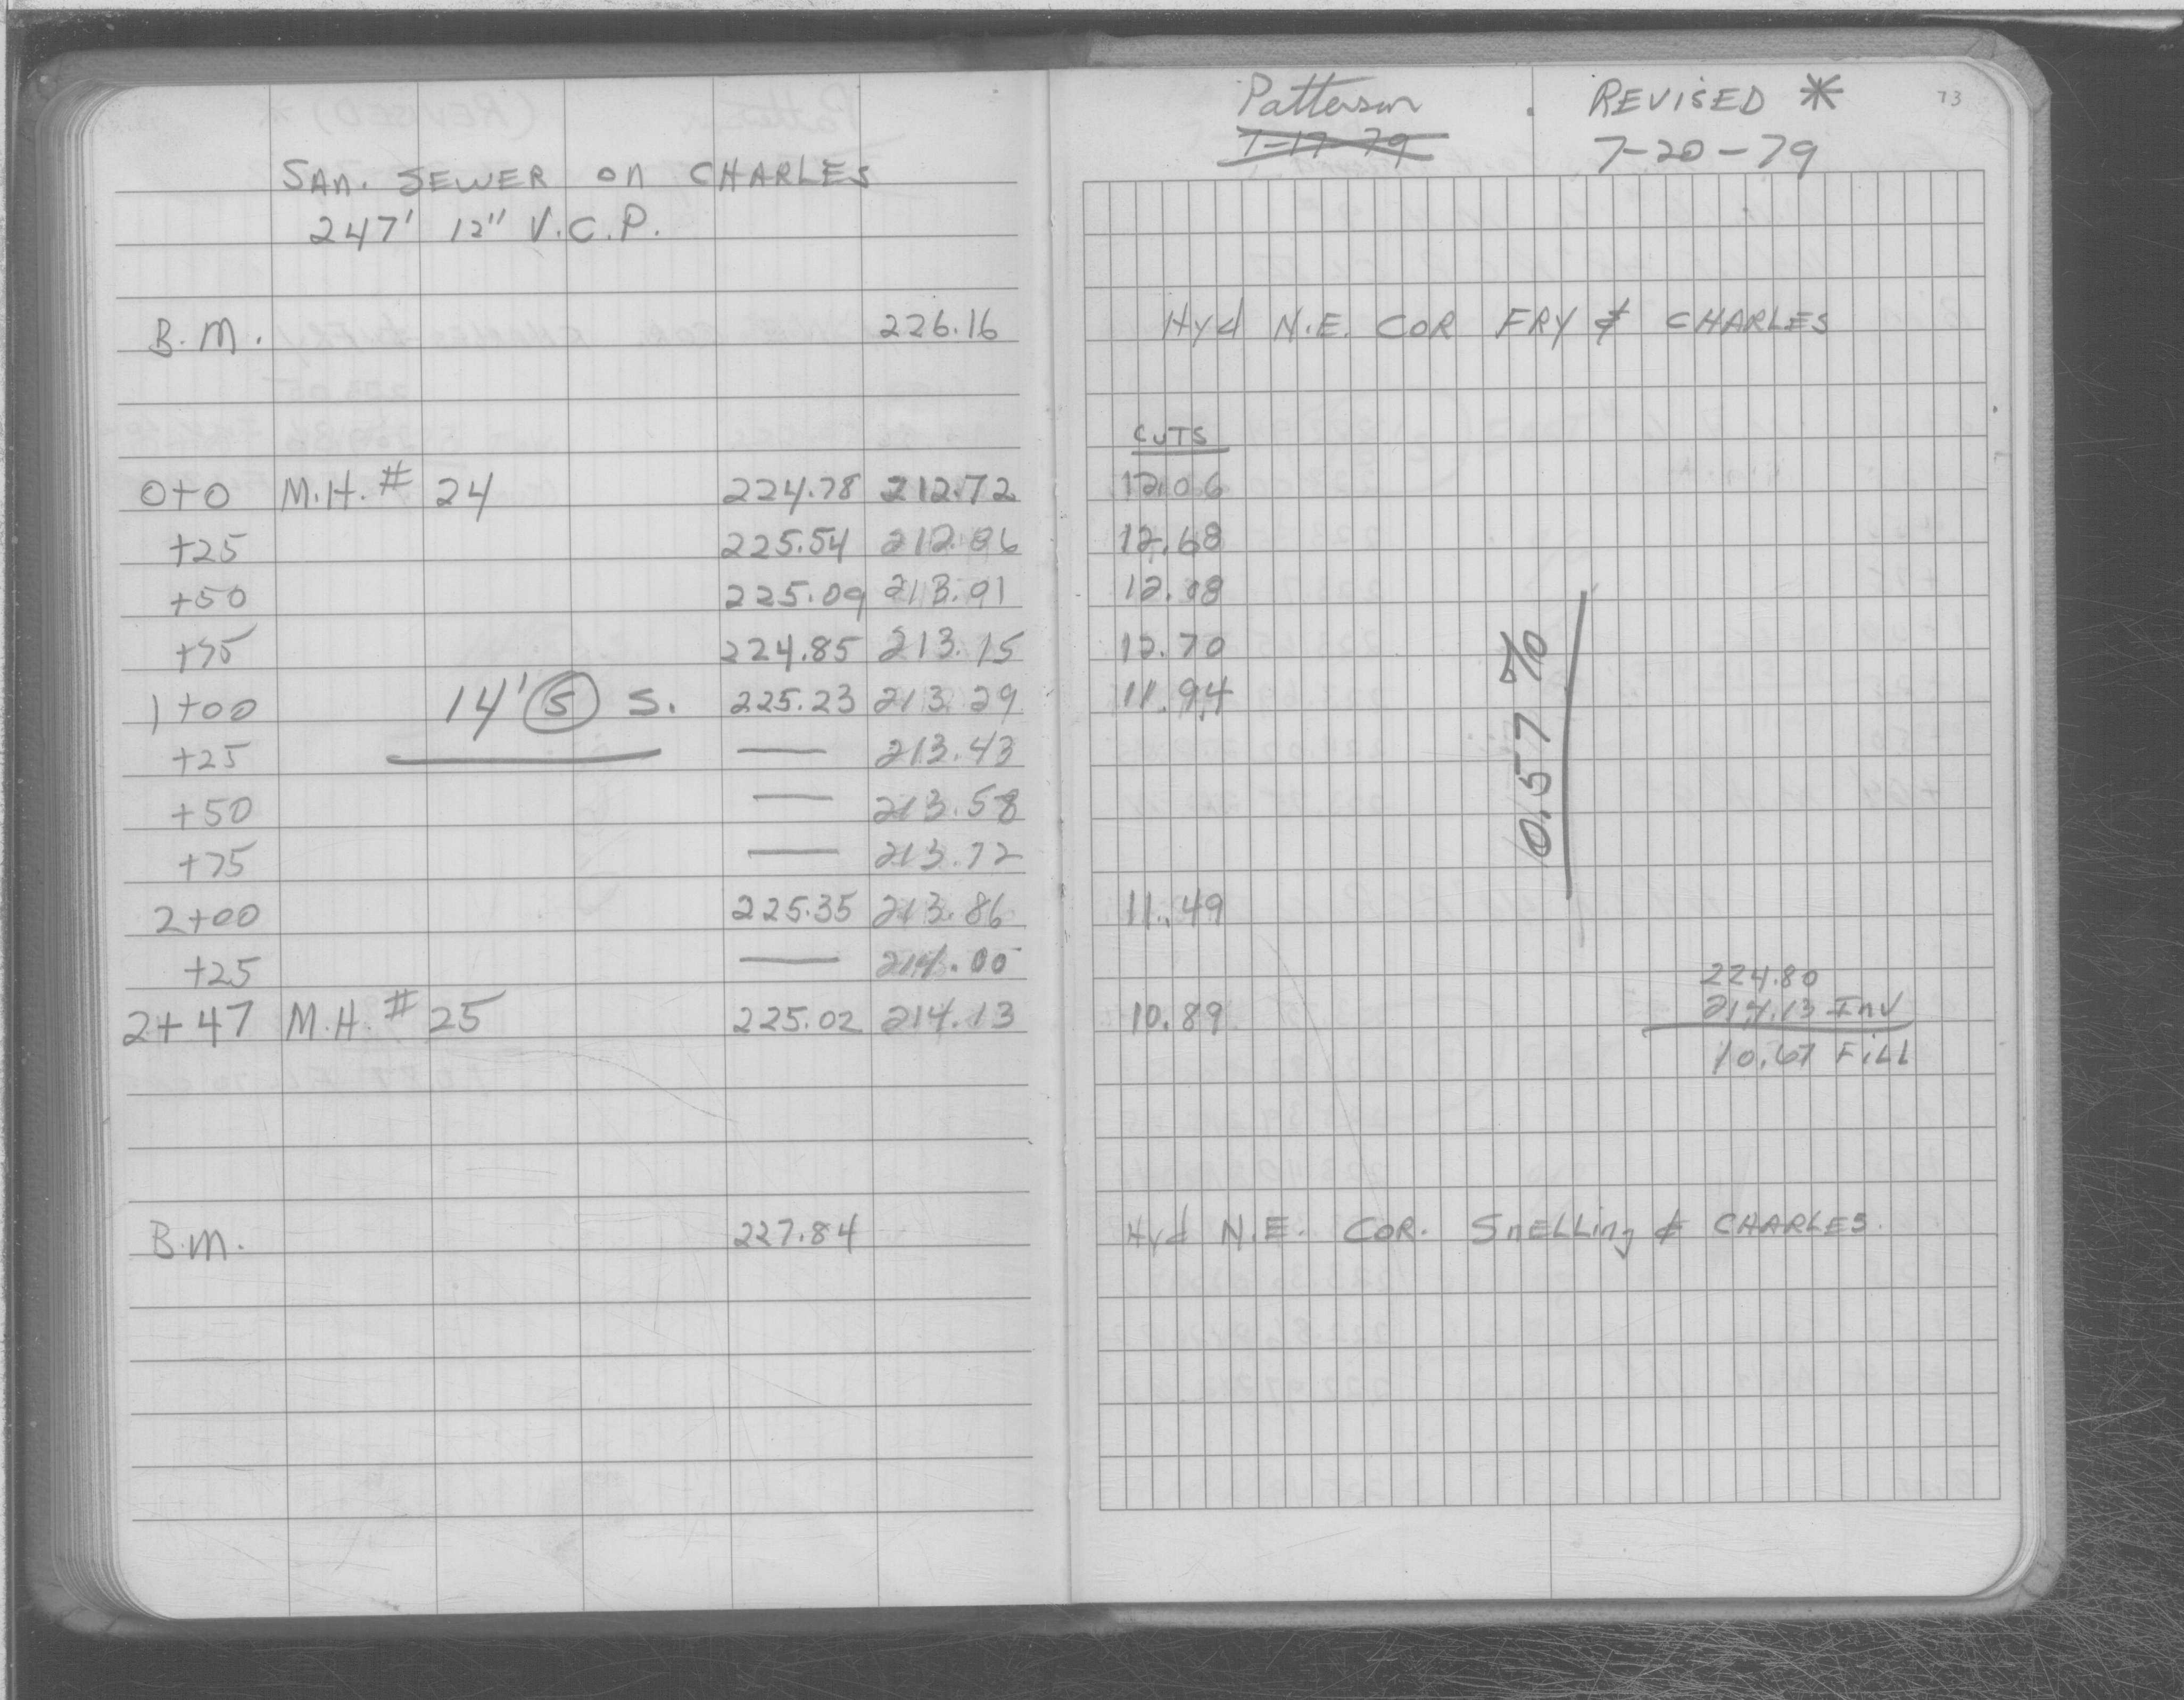 SAN. SEWER ON CHARLES
247' 12" V.C.P.
B.M. 226.16
0+0 M.H. # 24 224.78 212.72
+25 225.54 212.86
+50 225.09 213.01
+75 224.85 213.15
1+00 14' Ⓢ S. 225.23 213.29
+25 — 213.43
+50 — 213.58
+75 — 213.72
2+00 225.35 213.86
+25 — 214.00
2+47 M.H. # 25 225.02 214.13
B.M. 227.84
Patterson REVISED * 73
7-17-79 7-20-79
Hyd N.E. COR FRY & CHARLES
CUTS
12.06
12.68
12.08
12.70
11.94
0.57%
11.49
224.80
10.89 214.13 Inv
10.67 FILL
Hyd N.E. COR. SnELLing & CHARLES.